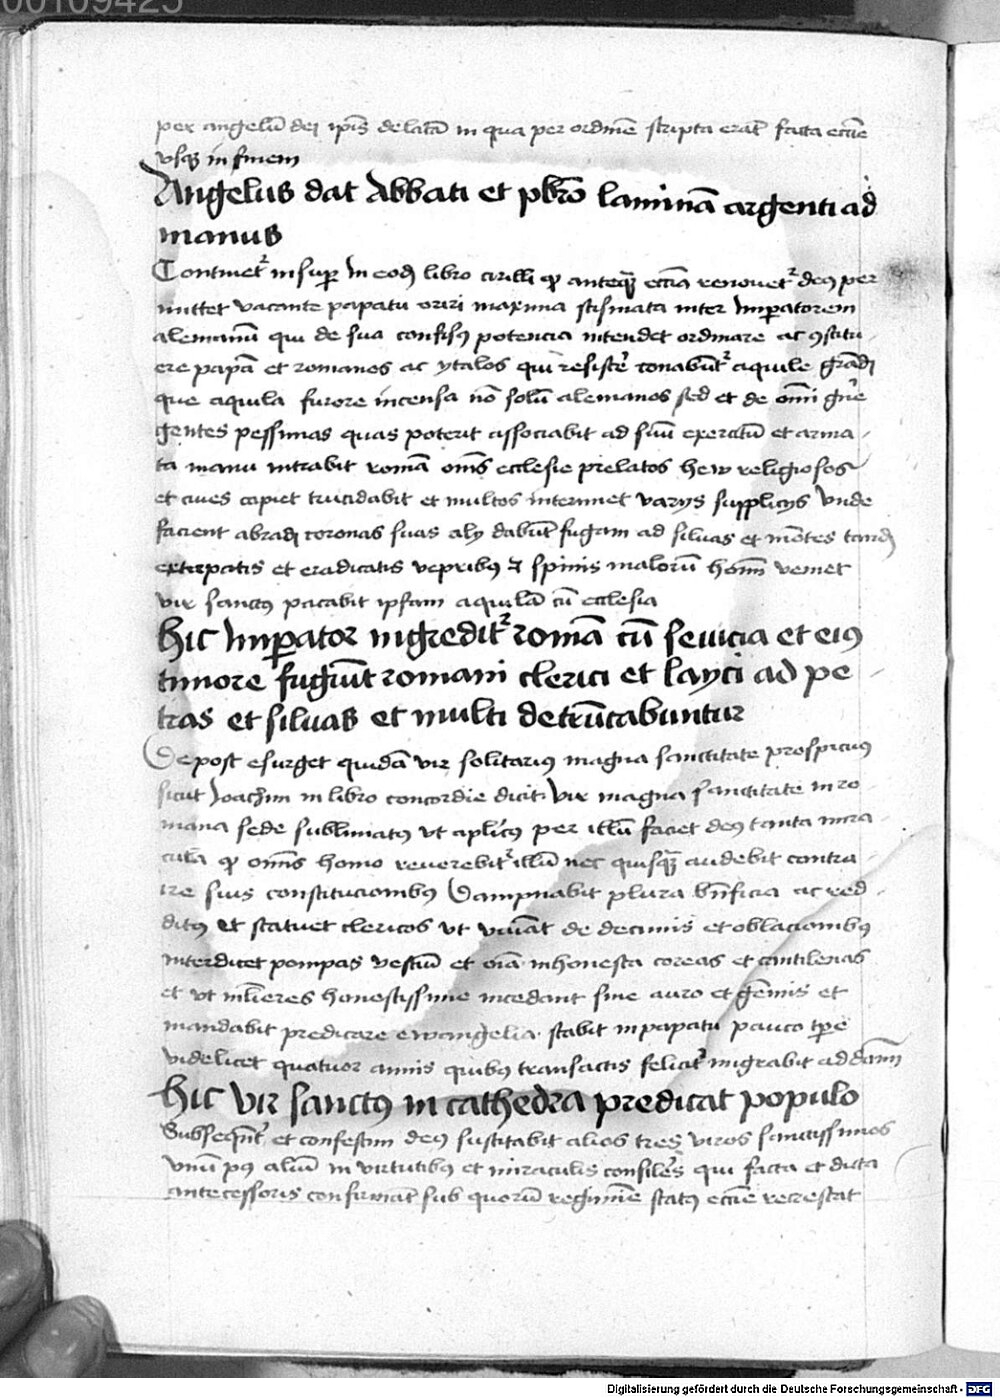 00109425
per angelū dei ip̄is delatā in qua per ordinē scripta erāt facta eccīe
vsqȝ in finem
Angelus dat Abbati et pb̄ro laminā argenti ad
manus
Continet᷑ insup̱ In eodē libro cirilli ꝙ anteqꝫ̄ eccīa renouet᷑ deꝰ per
mittet vacante papatu oriri maxima scismata inter Imp̱atorem
alemanū qui de sua confisꝰ potencia intendet ordinare ac ꝯstitu
ere papā et romanos ac ytalos qui resistē conabūt᷑ aquile grādi
que aquila furore incensa nō solū alemanos sed et de om̄i gn̄e
gentes pessimas quas poterit associabit ad suū exercitū et arma
ta manu intrabit romā om̄s ecclesie prelatos hew religiosos
et ciues capiet trucidabit et multos interimet varys supplicys Vnde
facient abradi coronas suas aly dabūt fugam ad siluas et mōtes tandē
extirpatis et eradicatis vepribꝰ ⁊ spinis malorū hom̄ veniet
vir sanctꝰ pacabit ipsam aquilā cū ecclesia
Hic Imp̱ator ingredit᷑ romā cū seuicia et eiꝰ
timore fugiūt romani clerici et layci ad pe
tras et siluas et multi detrūcabuntur
De post exsurget quidā vir solitariꝰ magna sanctitate prospicuꝰ
sicut Joachim in libro concordie dicit Vir magna sanctitate in ro
mana sede sublimatꝰ vt ap̄licꝰ per illū faciet deꝰ tanta mira
cula ꝙ om̄is homo reuerebit᷑ illū nec quisqꝫ̄ audebit contra
ire suis constitucionibꝰ Dampnabit plura bn̄ficia ac red
ditꝰ Et statuet clericos vt viuāt de decimis et oblacionibꝰ
interdicet pompas vestiū et oīa inhonesta coreas et cantilenas
et vt ml̄ieres honestissime incedant sine auro et gēmis et
mandabit predicare ewangelia stabit in papatu pauco tp̄e
videlicet quatuor annis quibꝰ transactis felicit̄ migrabit ad dn̄m
Hic vir sanctꝰ in cathedra predicat populo
Subseqn̄t̄ et confestim deꝰ suscitabit alios tres viros sanctissimos
vnū pꝰ aliū in virtutibꝰ et miraculis consīles qui facta et dicta
antecessoris confirmāt sub quorū regimīe statꝰ eccīe recrescat
Digitalisierung gefördert durch die Deutsche Forschungsgemeinschaft - DFG